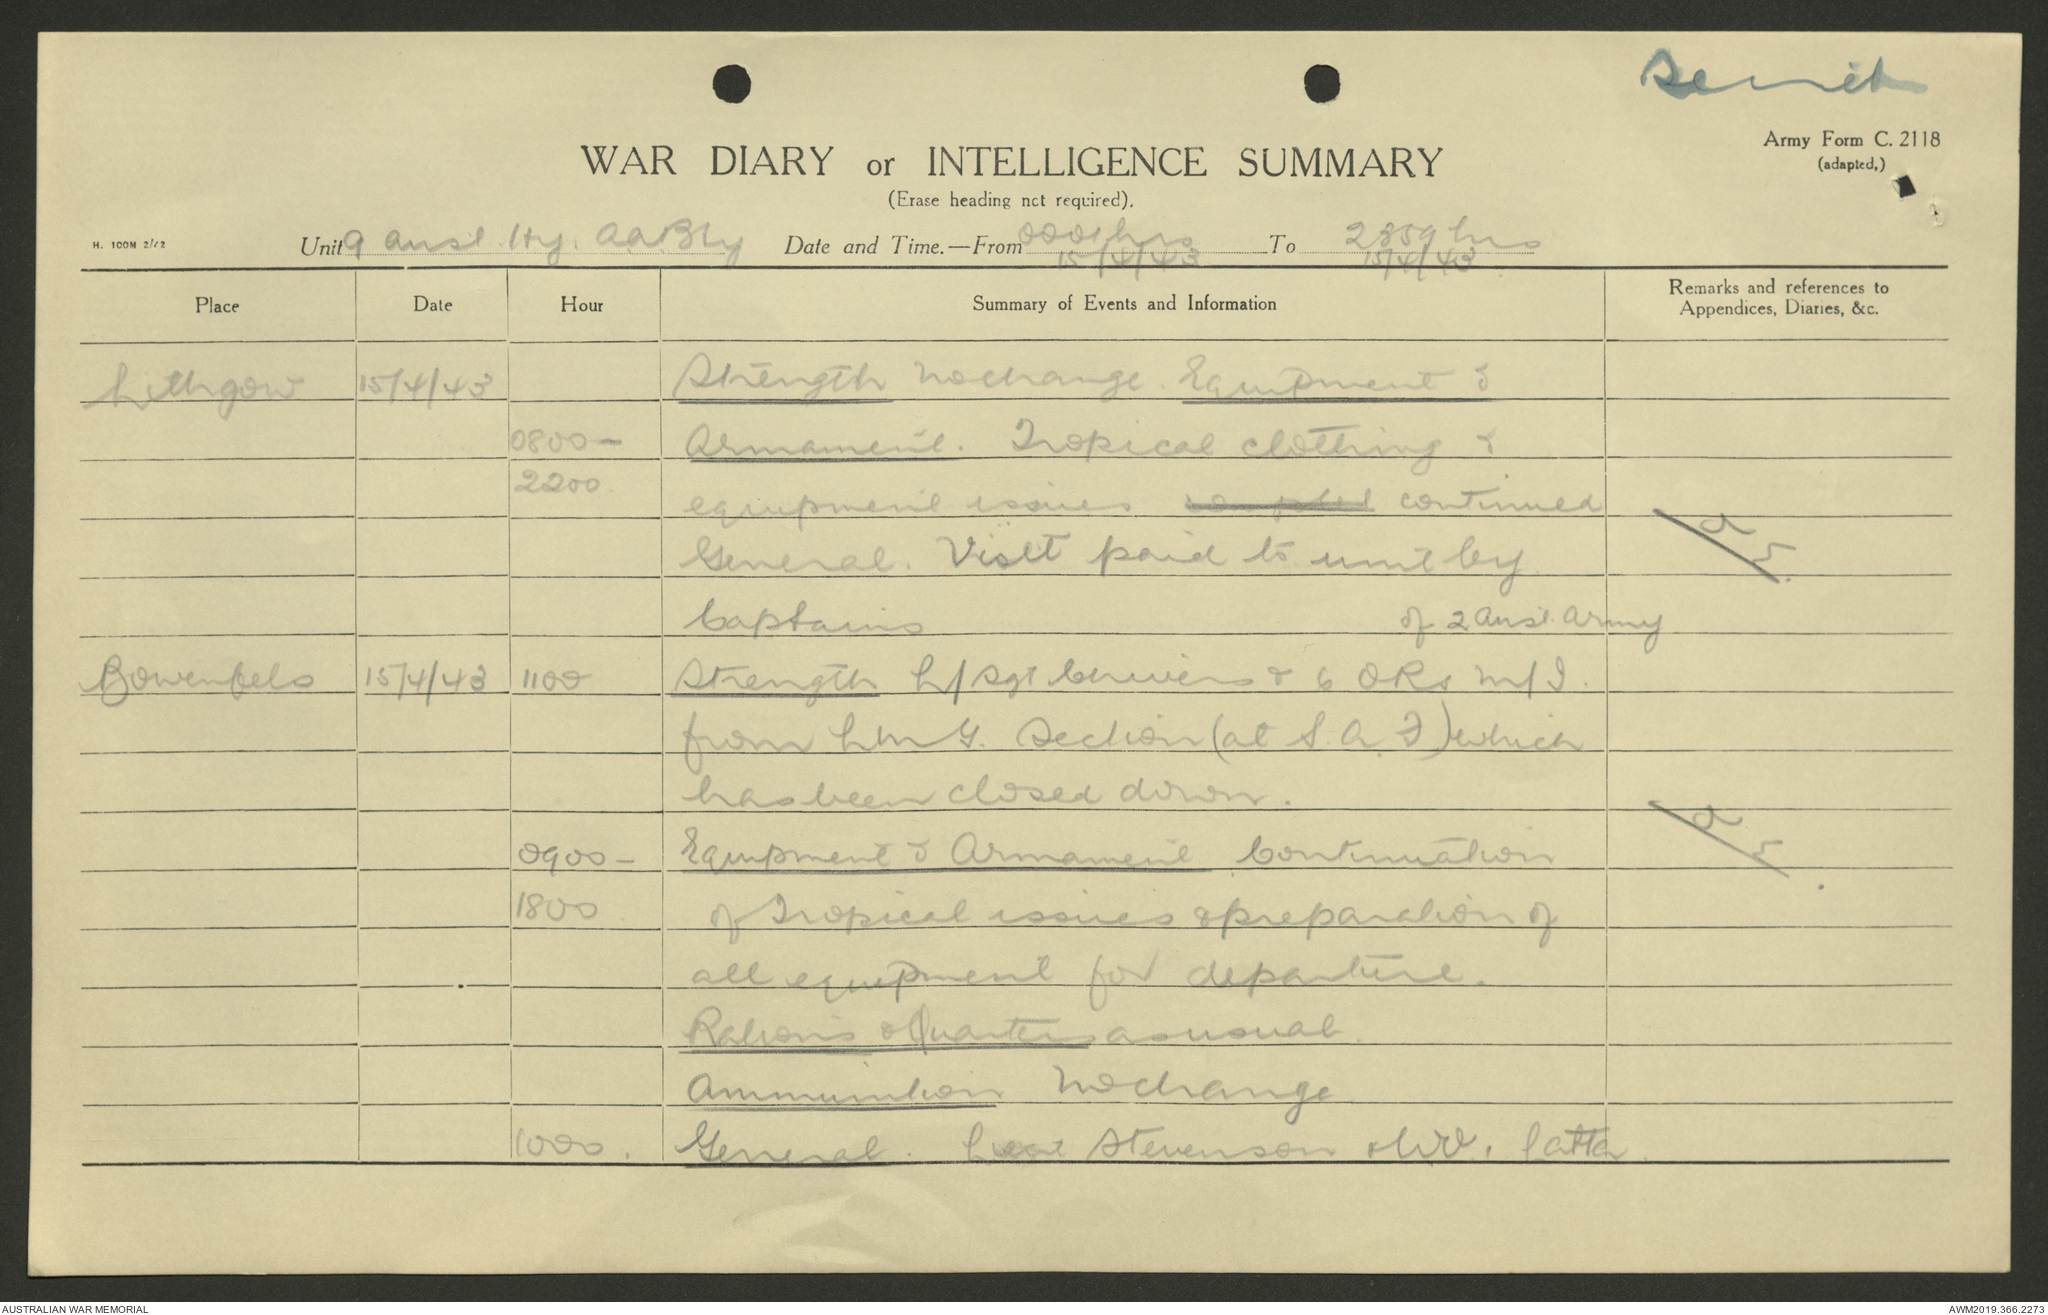 Secret
Army Form C. 2118
(adapted,)
WAR DIARY or INTELLIGENCE SUMMARY
(Erase heading not required).
H. 100M 2/42
Unit 9 Aust. Hy. AA Bty Date and Time.—From 0001 hrs 15/4/43 To 2359 hrs 15/4/43
Place Date Hour Summary of Events and Information Remarks and references to Appendices, Diaries, &c.
Lithgow 15/4/43 Strength No change. Equipment &
0800- Armament. Tropical clothing &
2200 equipment issues completed continued
General. Visit paid to unit by
Captains of 2 Aust. Army
Bowenfels 15/4/43 1100 Strength L/Sgt & 6 ORs M/I.
from LMG. Section (at S.A.F) which
has been closed down.
0900- Equipment & Armament Continuation
1800 of Tropical issues & preparation of
all equipment for departure.
Rations & Quarters as usual.
Ammunition No change
1000. General. Lieut Stevenson & Latta.
AUSTRALIAN WAR MEMORIAL
AWM2019.366.2273